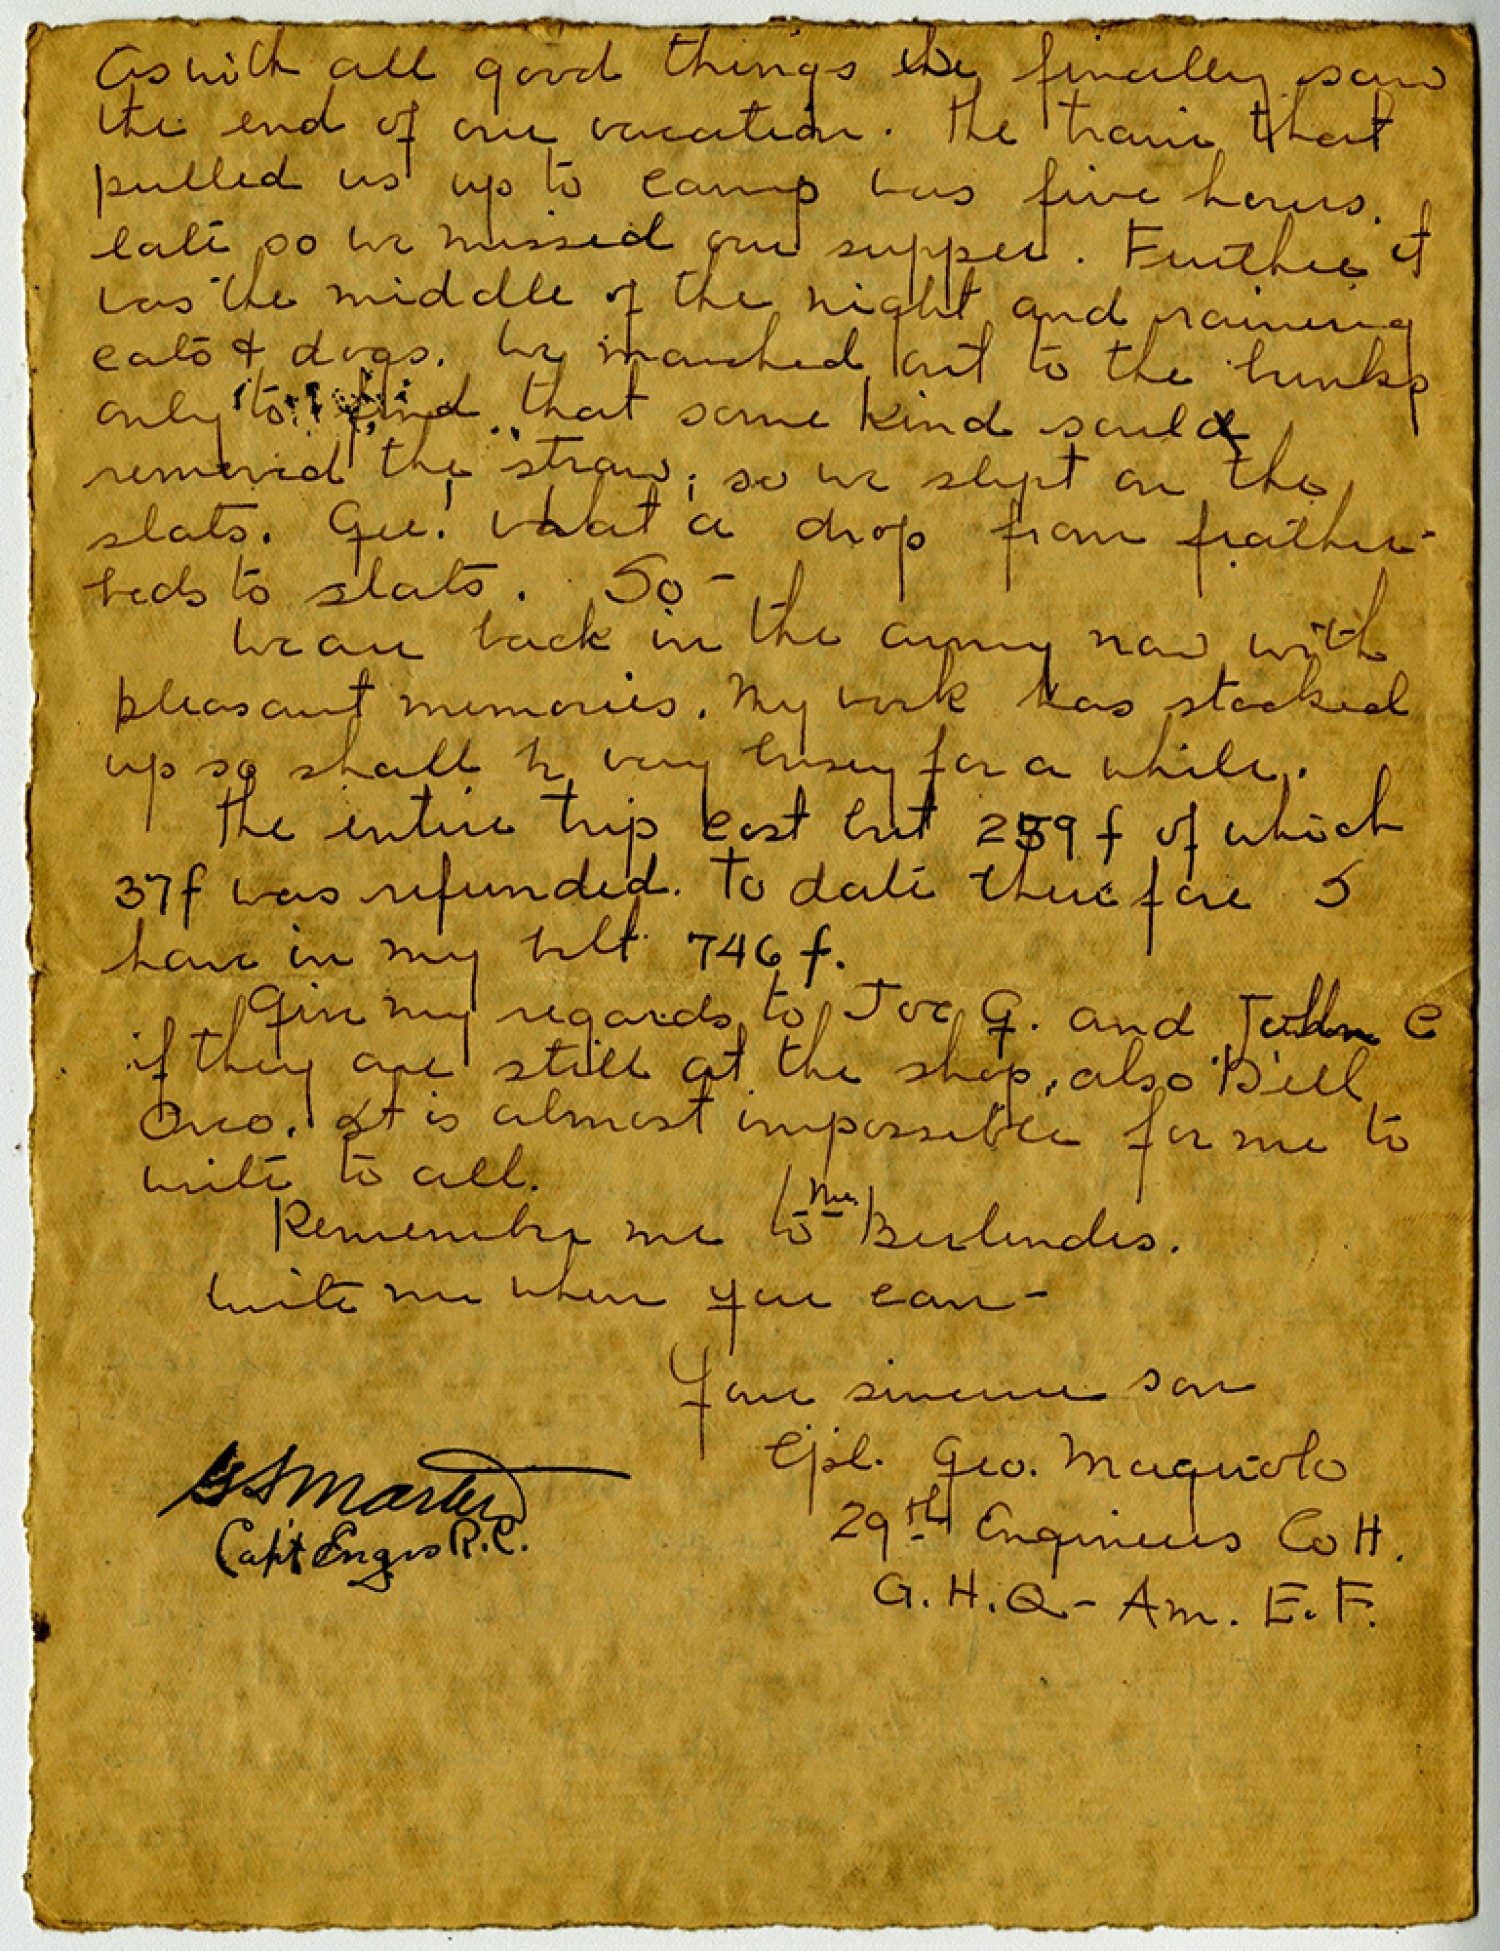 As with all good things we finally saw
the end of our vacation. The train that
pulled us up to camp was five hours.
late so we missed our supper. Further it
was the middle of the night and raining
cats & dogs. We marched out to the bunks
only to find that some kind soul
removed the straw, so we slept on the
slats. Gee! What a drop from feather-
beds to slats. So -
We are back in the army now with
pleasant memories. My work has stacked
up so shall be very busy for a while.
The entire trip cost but 259f of which
37f was refunded. To date therefore I
have in my belt 746f.
Give my regards to Joe G. and John C
if they are still at the shop, also Bill
Orio. It is almost impossible for me to
write to all.
Remember me to Mrs. Berlendis.
Write me when you can -
Your sincere son
Cpl. Geo. Magnolo
29th Engineers Co H.
G.H.Q - Am. E.F.
Marter
Capt Engrs R.C.